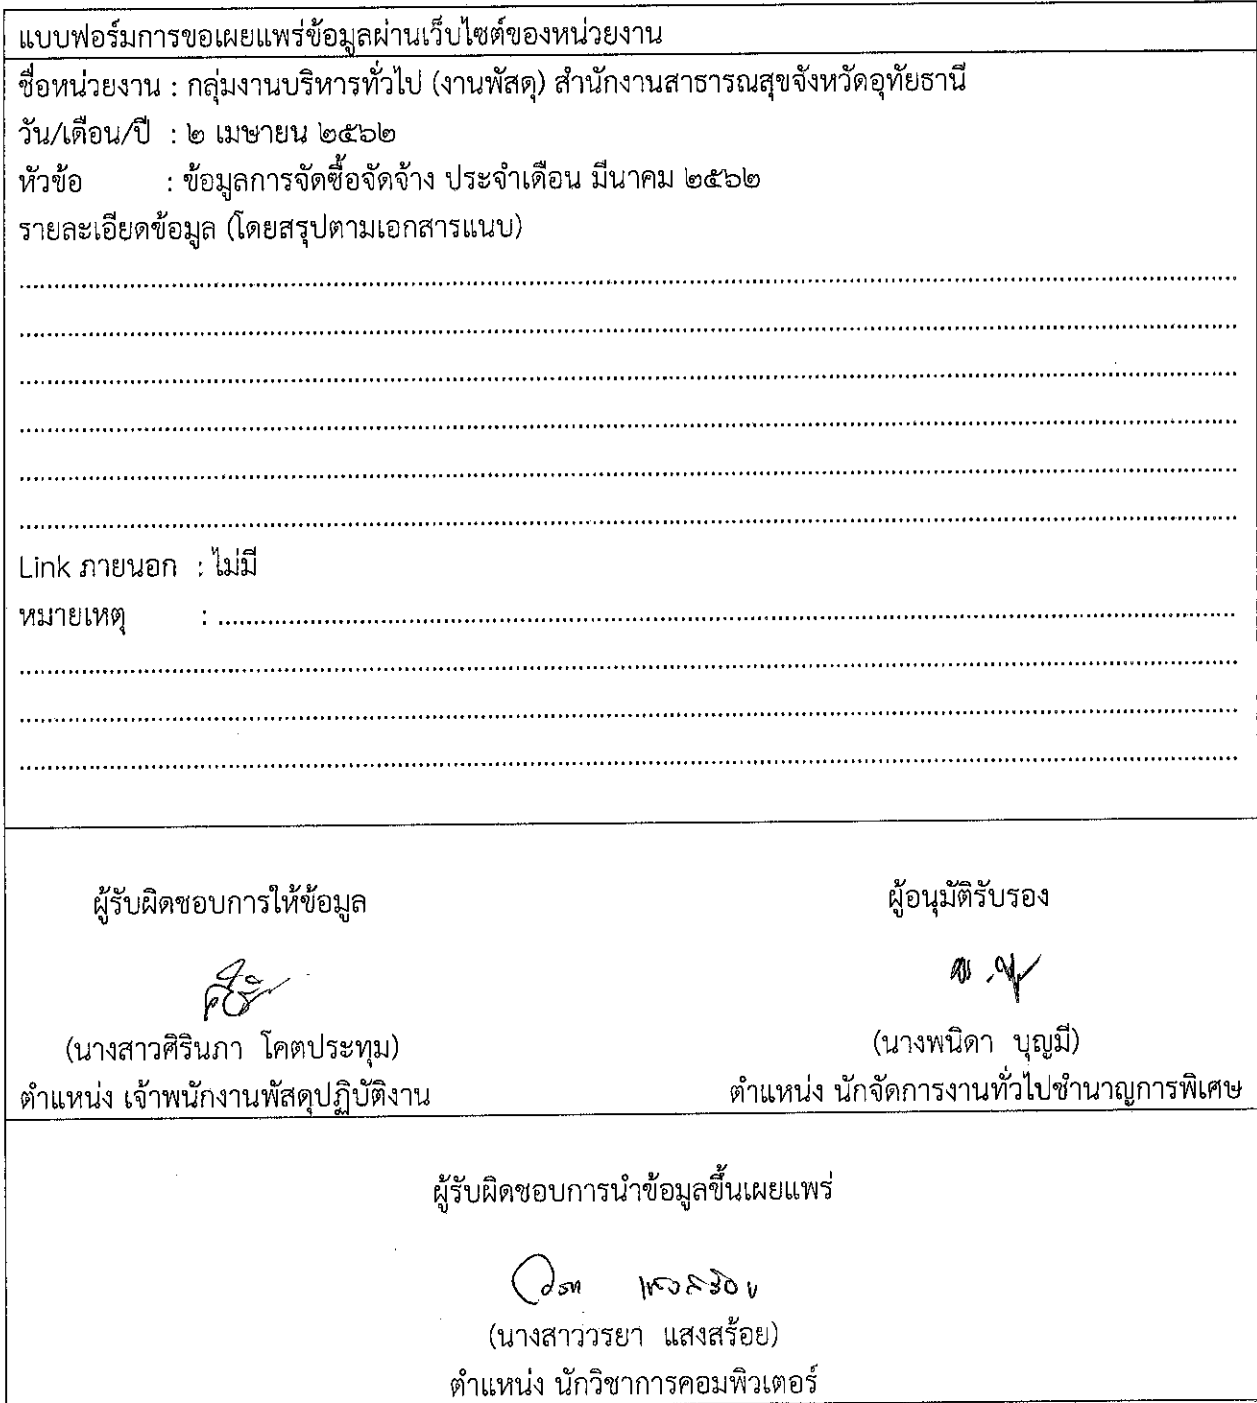 แบบฟอร์มการขอเผยแพร่ข้อมูลผ่านเว็บไซต์ของหน่วยงาน
ชื่อหน่วยงาน : กลุ่มงานบริหารทั่วไป (งานพัสดุ) สำนักงานสาธารณสุขจังหวัดอุทัยธานี
วัน/เดือน/ปี : ๒ เมษายน ๒๕๖๒
หัวข้อ : ข้อมูลการจัดซื้อจัดจ้าง ประจำเดือน มีนาคม ๒๕๖๒
รายละเอียดข้อมูล (โดยสรุปตามเอกสารแนบ)
Link ภายนอก : ไม่มี
หมายเหตุ :
ผู้รับผิดชอบการให้ข้อมูล
ผู้อนุมัติรับรอง
(นางสาวศิรินภา โคตประทุม)
(นางพนิดา บุญมี)
ตำแหน่ง เจ้าพนักงานพัสดุปฏิบัติงาน
ตำแหน่ง นักจัดการงานทั่วไปชำนาญการพิเศษ
ผู้รับผิดชอบการนำข้อมูลขึ้นเผยแพร่
(นางสาววรยา แสงสร้อย)
ตำแหน่ง นักวิชาการคอมพิวเตอร์